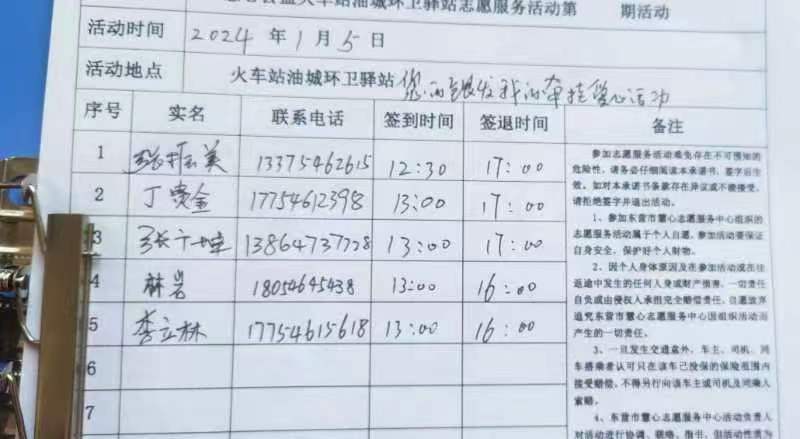 公益火车站油城环卫驿站志愿服务活动第 期活动
活动时间 2024 年 1 月 5 日
活动地点 火车站油城环卫驿站 您的银发我的牵挂爱心活动
序号 实名 联系电话 签到时间 签退时间 备注
1 张振美 13375462615 12:30 17:00
2 丁 金 17754612398 13:00 17:00
3 张 13864737778 13:00 17:00
4 林岩 18054645438 13:00 16:00
5 李立林 17754615618 13:00 16:00
6
7
参加志愿服务活动难免存在不可预知的
危险性,请务必仔细阅读本承诺书,签字后生
效。如对本承诺书条款存在异议或不能接受,
请拒绝签字并退出活动。
1、参加东营市慧心志愿服务中心组织的
志愿服务活动属于个人自愿。参加活动要保证
自身安全,保护好个人财物。
2、因个人身体原因及在参加活动或在往
返途中发生的任何人身或财产损害,一切责任
自负或由侵权人承担完全赔偿责任。自愿放弃
追究东营市慧心志愿服务中心因组织活动而
产生的一切责任。
3、一旦发生交通意外,车主、司机、同
车搭乘者认可只在该车已投保的保险范围内
接受赔偿,不得另行向该车主或司机及同乘人
索赔。
4、东营市慧心志愿服务中心活动负责人
对活动进行协调、联络、指引,但活动性质为